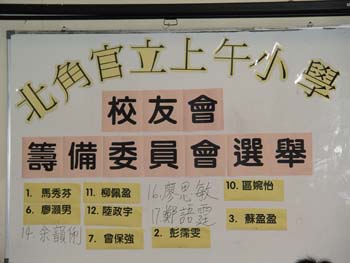 北角官立上午小學
校友會
籌備委員會選舉
1. 馬秀芬
11. 柳佩盈
16. 廖思敏
10. 區婉怡
6. 廖灝男
12. 陸政宇
17. 鄭語霆
3. 蘇盈盈
14. 余韻俐
7. 曾保強
2. 彭霈雯